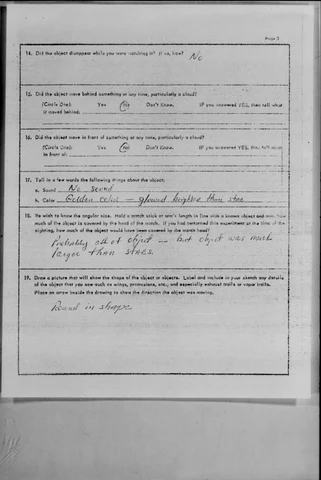 Page 3
14. Did the object disappear while you were watching it? If so, how?
No
15. Did the object move behind something at any time, particularly a cloud?
(Circle One): Yes No Don't Know. IF you answered YES, then tell what
it moved behind:
16. Did the object move in front of something at any time, particularly a cloud?
(Circle One): Yes No Don't Know. IF you answered YES, then tell what
in front of:
17. Tell in a few words the following things about the object:
a. Sound No sound
b. Color Golden color - glowed brighter than star
18. We wish to know the angular size. Hold a match stick at arm's length in line with a known object and note how
much of the object is covered by the head of the match. If you had performed this experiment at the time of the
sighting, how much of the object would have been covered by the match head?
Probably all of object - but object was much
larger than stars.
19. Draw a picture that will show the shape of the object or objects. Label and include in your sketch any details
of the object that you saw such as wings, protrusions, etc., and especially exhaust trails or vapor trails.
Place an arrow beside the drawing to show the direction the object was moving.
Round in shape